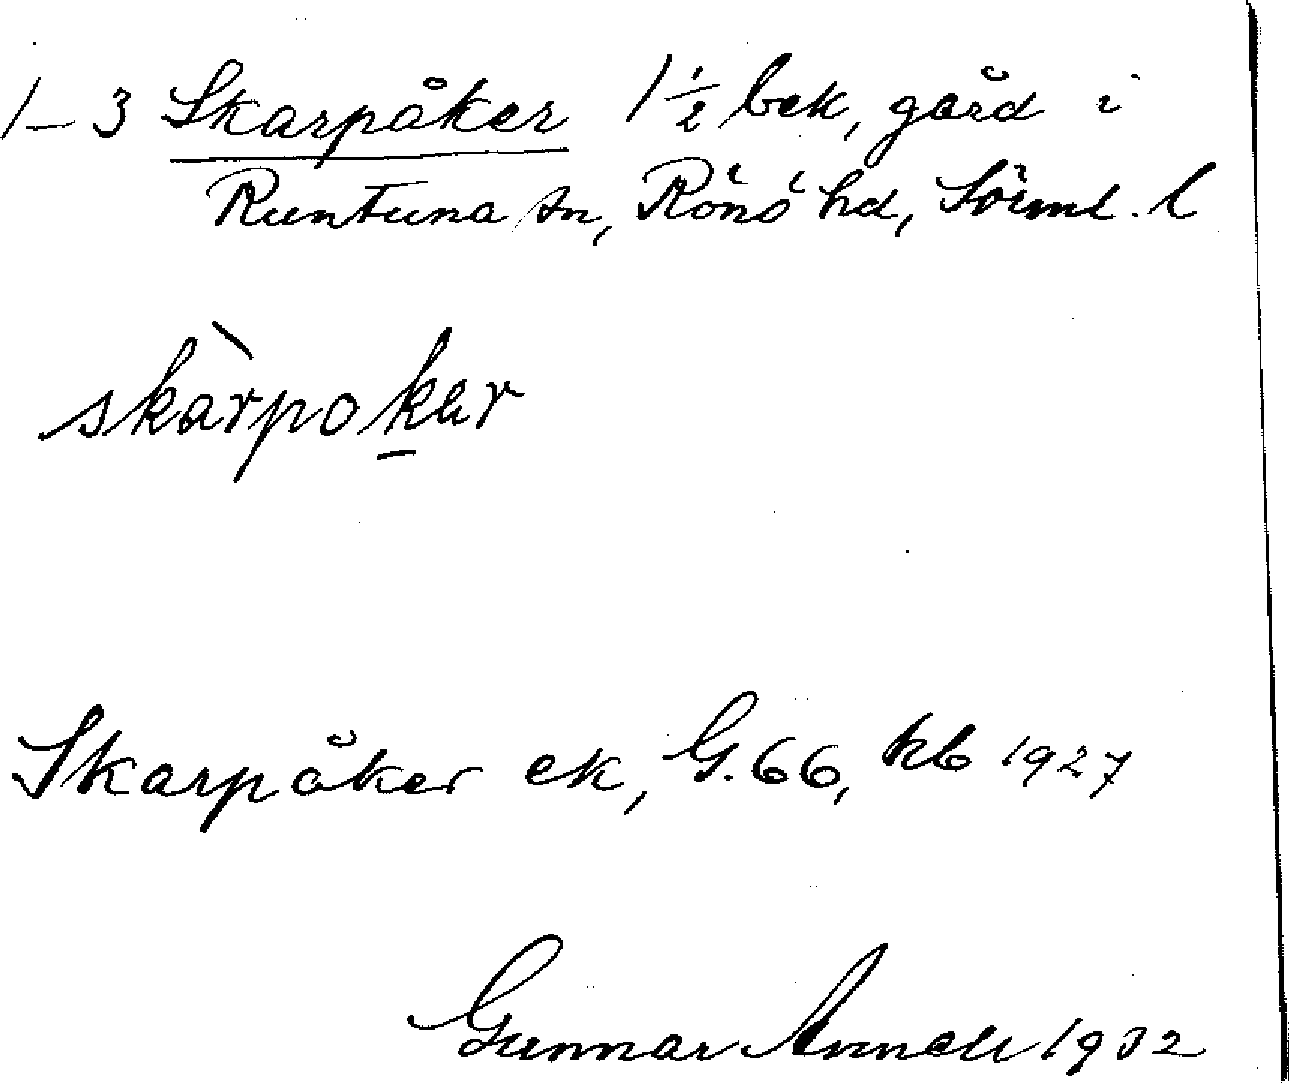 1–3 Skarpåker 1½ bek, gård i
Runtuna sn, Rönö hd, Söml. l
skàrpokar
Skarpåker ek, G.66, kb 1927
Gunnar 1932